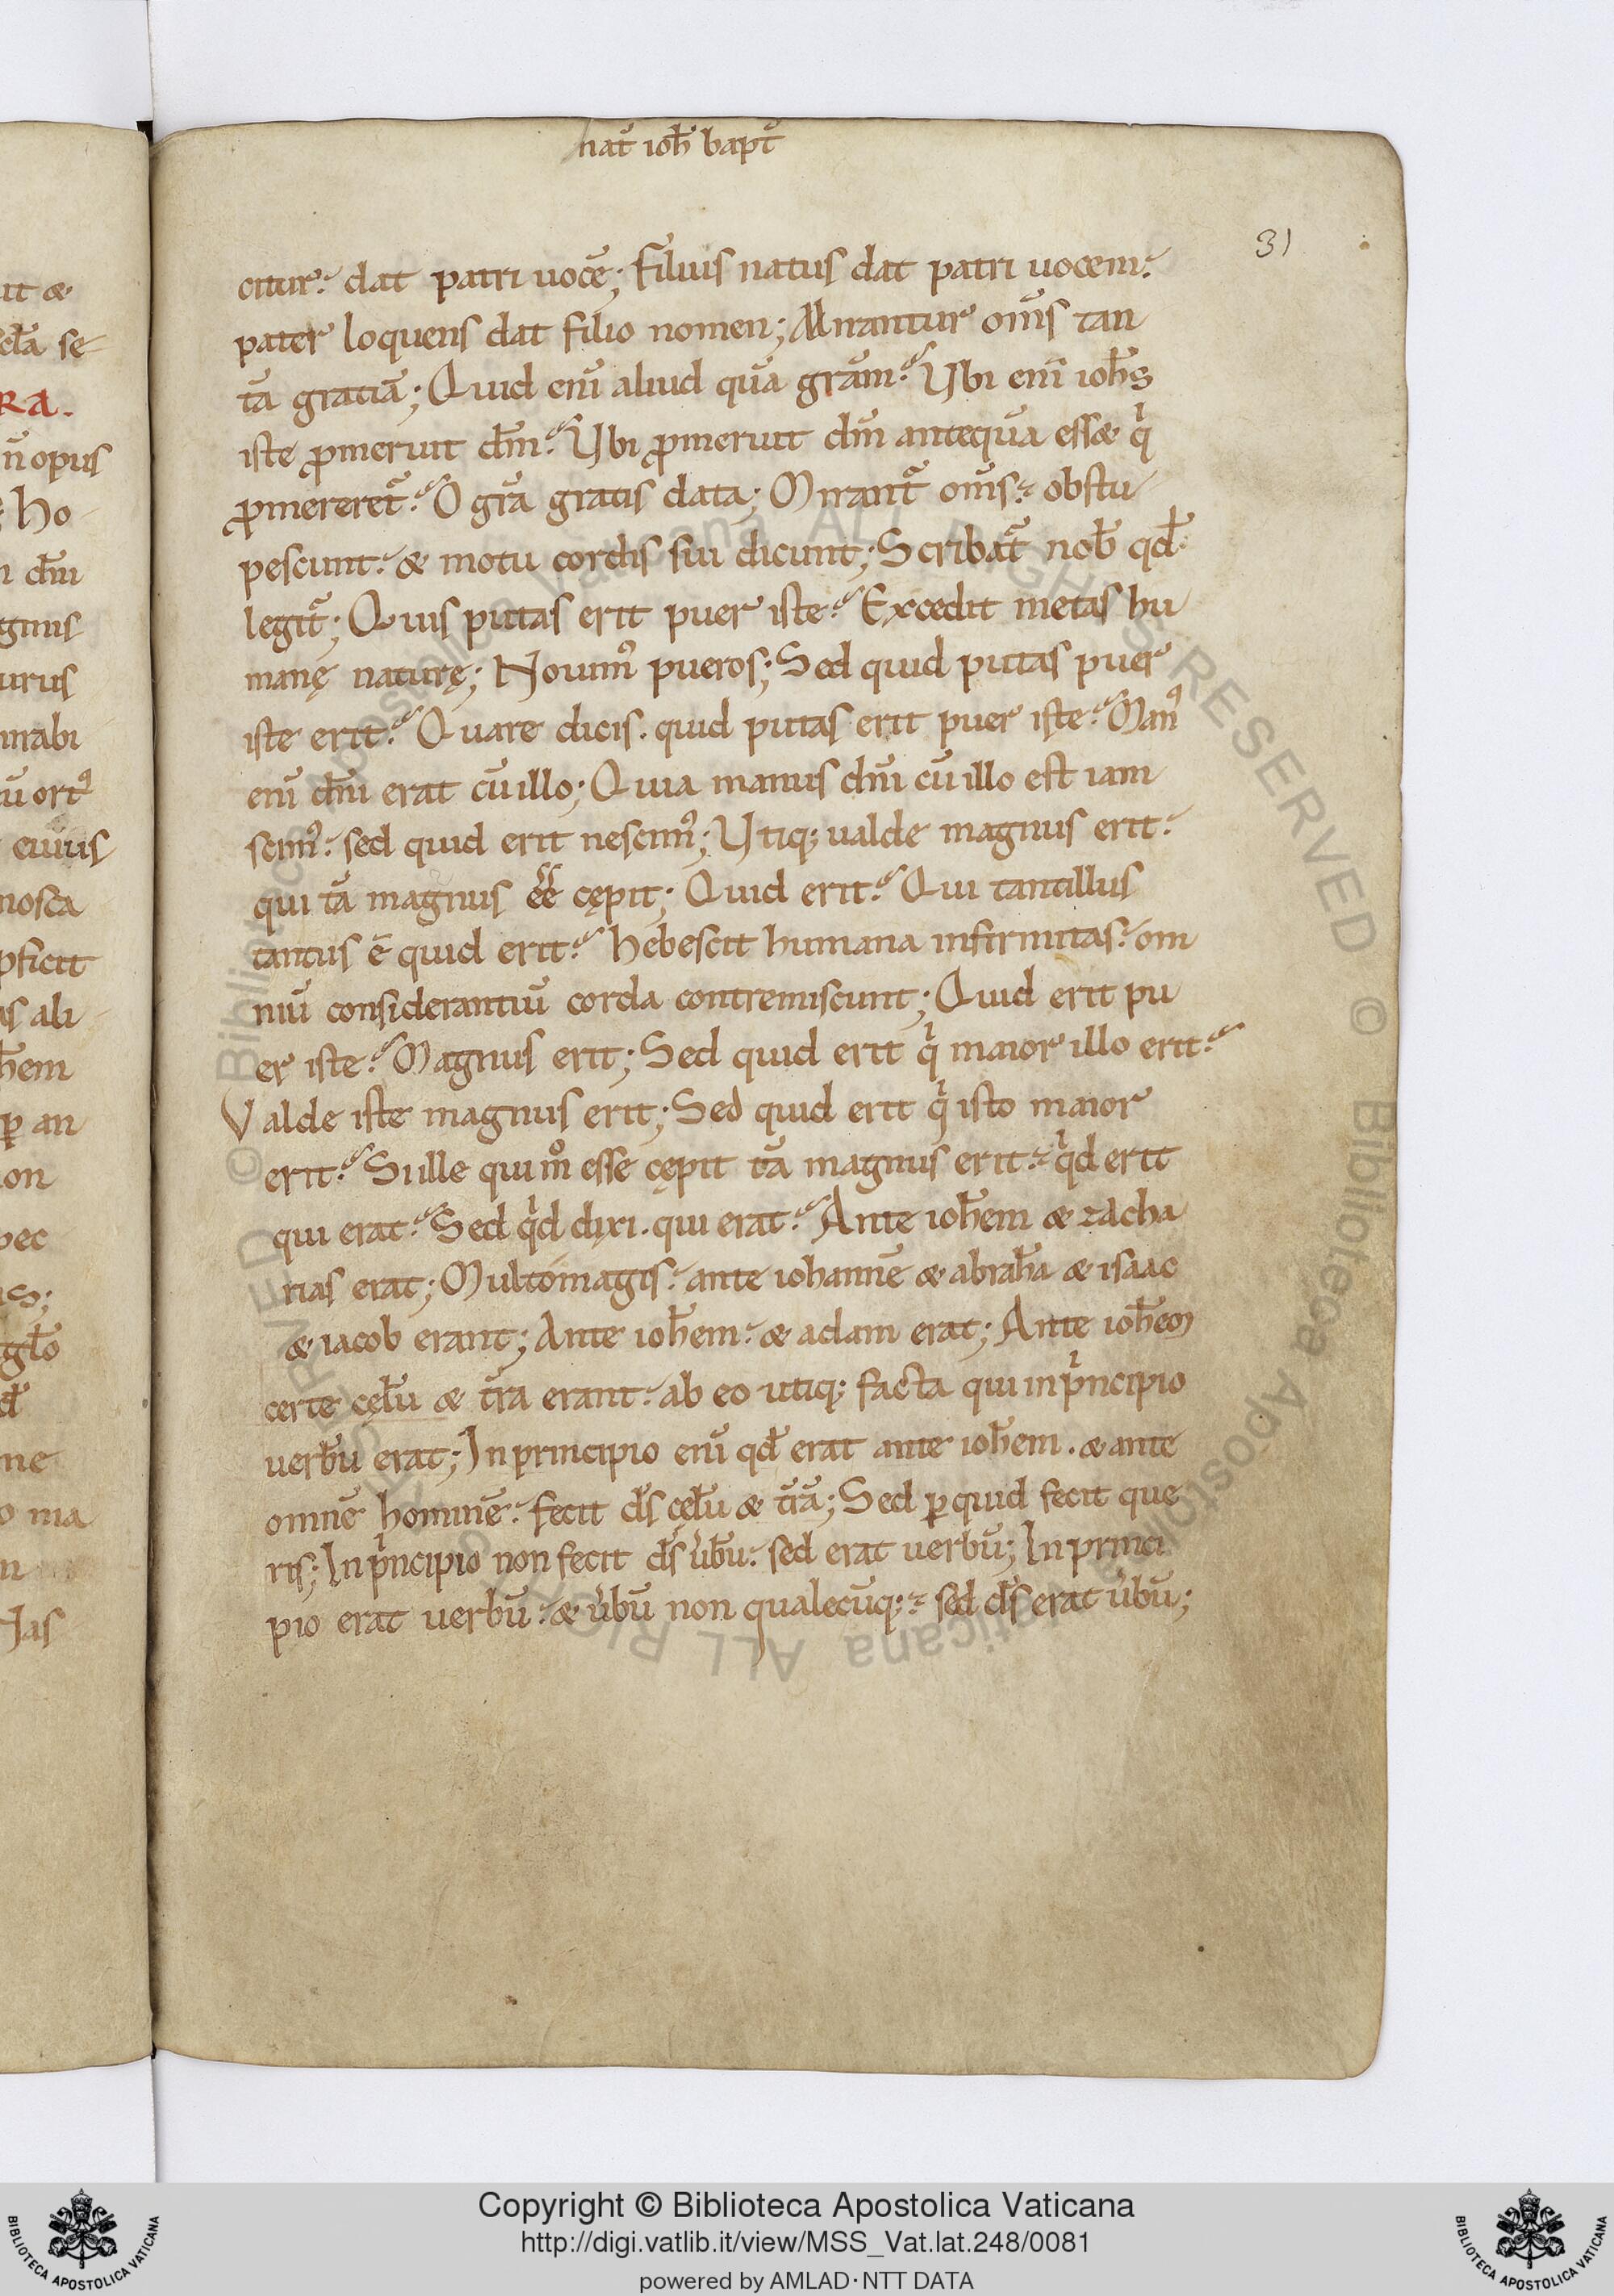 nat̄ ioh̄ bapt̄
31
citur. dat patri uocē; filius natus dat patri uocem.
pater loquens dat filio nomen; Mirantur om̄s tan
tā gratiā; Quid eni̅ aliud quā grām? Vbi eni̅ ioh̄s
iste ꝓmeruit dn̄m? Vbi ꝓmeruit dn̄m antequā esset qͥ
ꝓmereret᷑? O gr̄a gratis data; Mirant᷑ om̄s. obstu
pescunt. & motu cordis sui dicunt; Scribat᷑ nob̄ qd̄
legit᷑; Quis putas erit puer iste? Excedit metas hu
manę naturę; Nouimꝰ pueros; Sed quid putas puer
iste erit? Quare dicis. quid putas erit puer iste? Manꝰ
eni̅ dn̄i erat cū illo; Quia manus dn̄i cū illo est iam
scimꝰ. sed quid erit nescimꝰ; Vtiq; ualde magnus erit.
qui tā magnus ee̅ cępit; Quid erit? Qui tantillus
tantus ē quid erit? hebescit humana infirmitas. om
niū considerantiū corda contremiscunt; Quid erit pu
er iste? Magnus erit; Sed quid erit qͥ maior illo erit?
Valde iste magnus erit; Sed quid erit qͥ isto maior
erit? Si ille qui mͦ esse cępit tā magnus erit. qͥd erit
qui erat? Sed qͥd dixi. qui erat? Ante ioh̄em & zacha
rias erat; Multomagis. ante iohannē & abrah̄ā & isaac
& iacob erant; Ante ioh̄em. & adam erat; Ante ioh̄em
certe cęlū & t̄ra erant. ab eo utiq; facta qui in pͥncipio
uerbū erat; In principio eni̅ qd̄ erat ante ioh̄em. & ante
omnē hominē. fecit d̄s cęlū & t̄rā; Sed ꝑ quid fecit que
ris; In pͥncipio non fecit d̄s ūbū. sed erat uerbū; In princi
pio erat uerbū. & ūbū non qualecūq;. sed d̄s erat ūbū;
it &
scl̄a se
RA.
n̄ opus
ho
dn̄i
gnus
urus
mirabi
ū ortꝰ
euius
nosca
ꝓficit
as ali
h̄em
ꝑ an
ion
pec
is;
gl̄o
d̄
ne
o ma
n
las
Copyright © Biblioteca Apostolica Vaticana
http://digi.vatlib.it/view/MSS_Vat.lat.248/0081
powered by AMLAD·NTT DATA
BIBLIOTECA APOSTOLICA VATICANA
BIBLIOTECA APOSTOLICA VATICANA
© Biblioteca Apostolica Vaticana ALL RIGHTS RESERVED
© Biblioteca Apostolica Vaticana ALL RIGHTS RESERVED